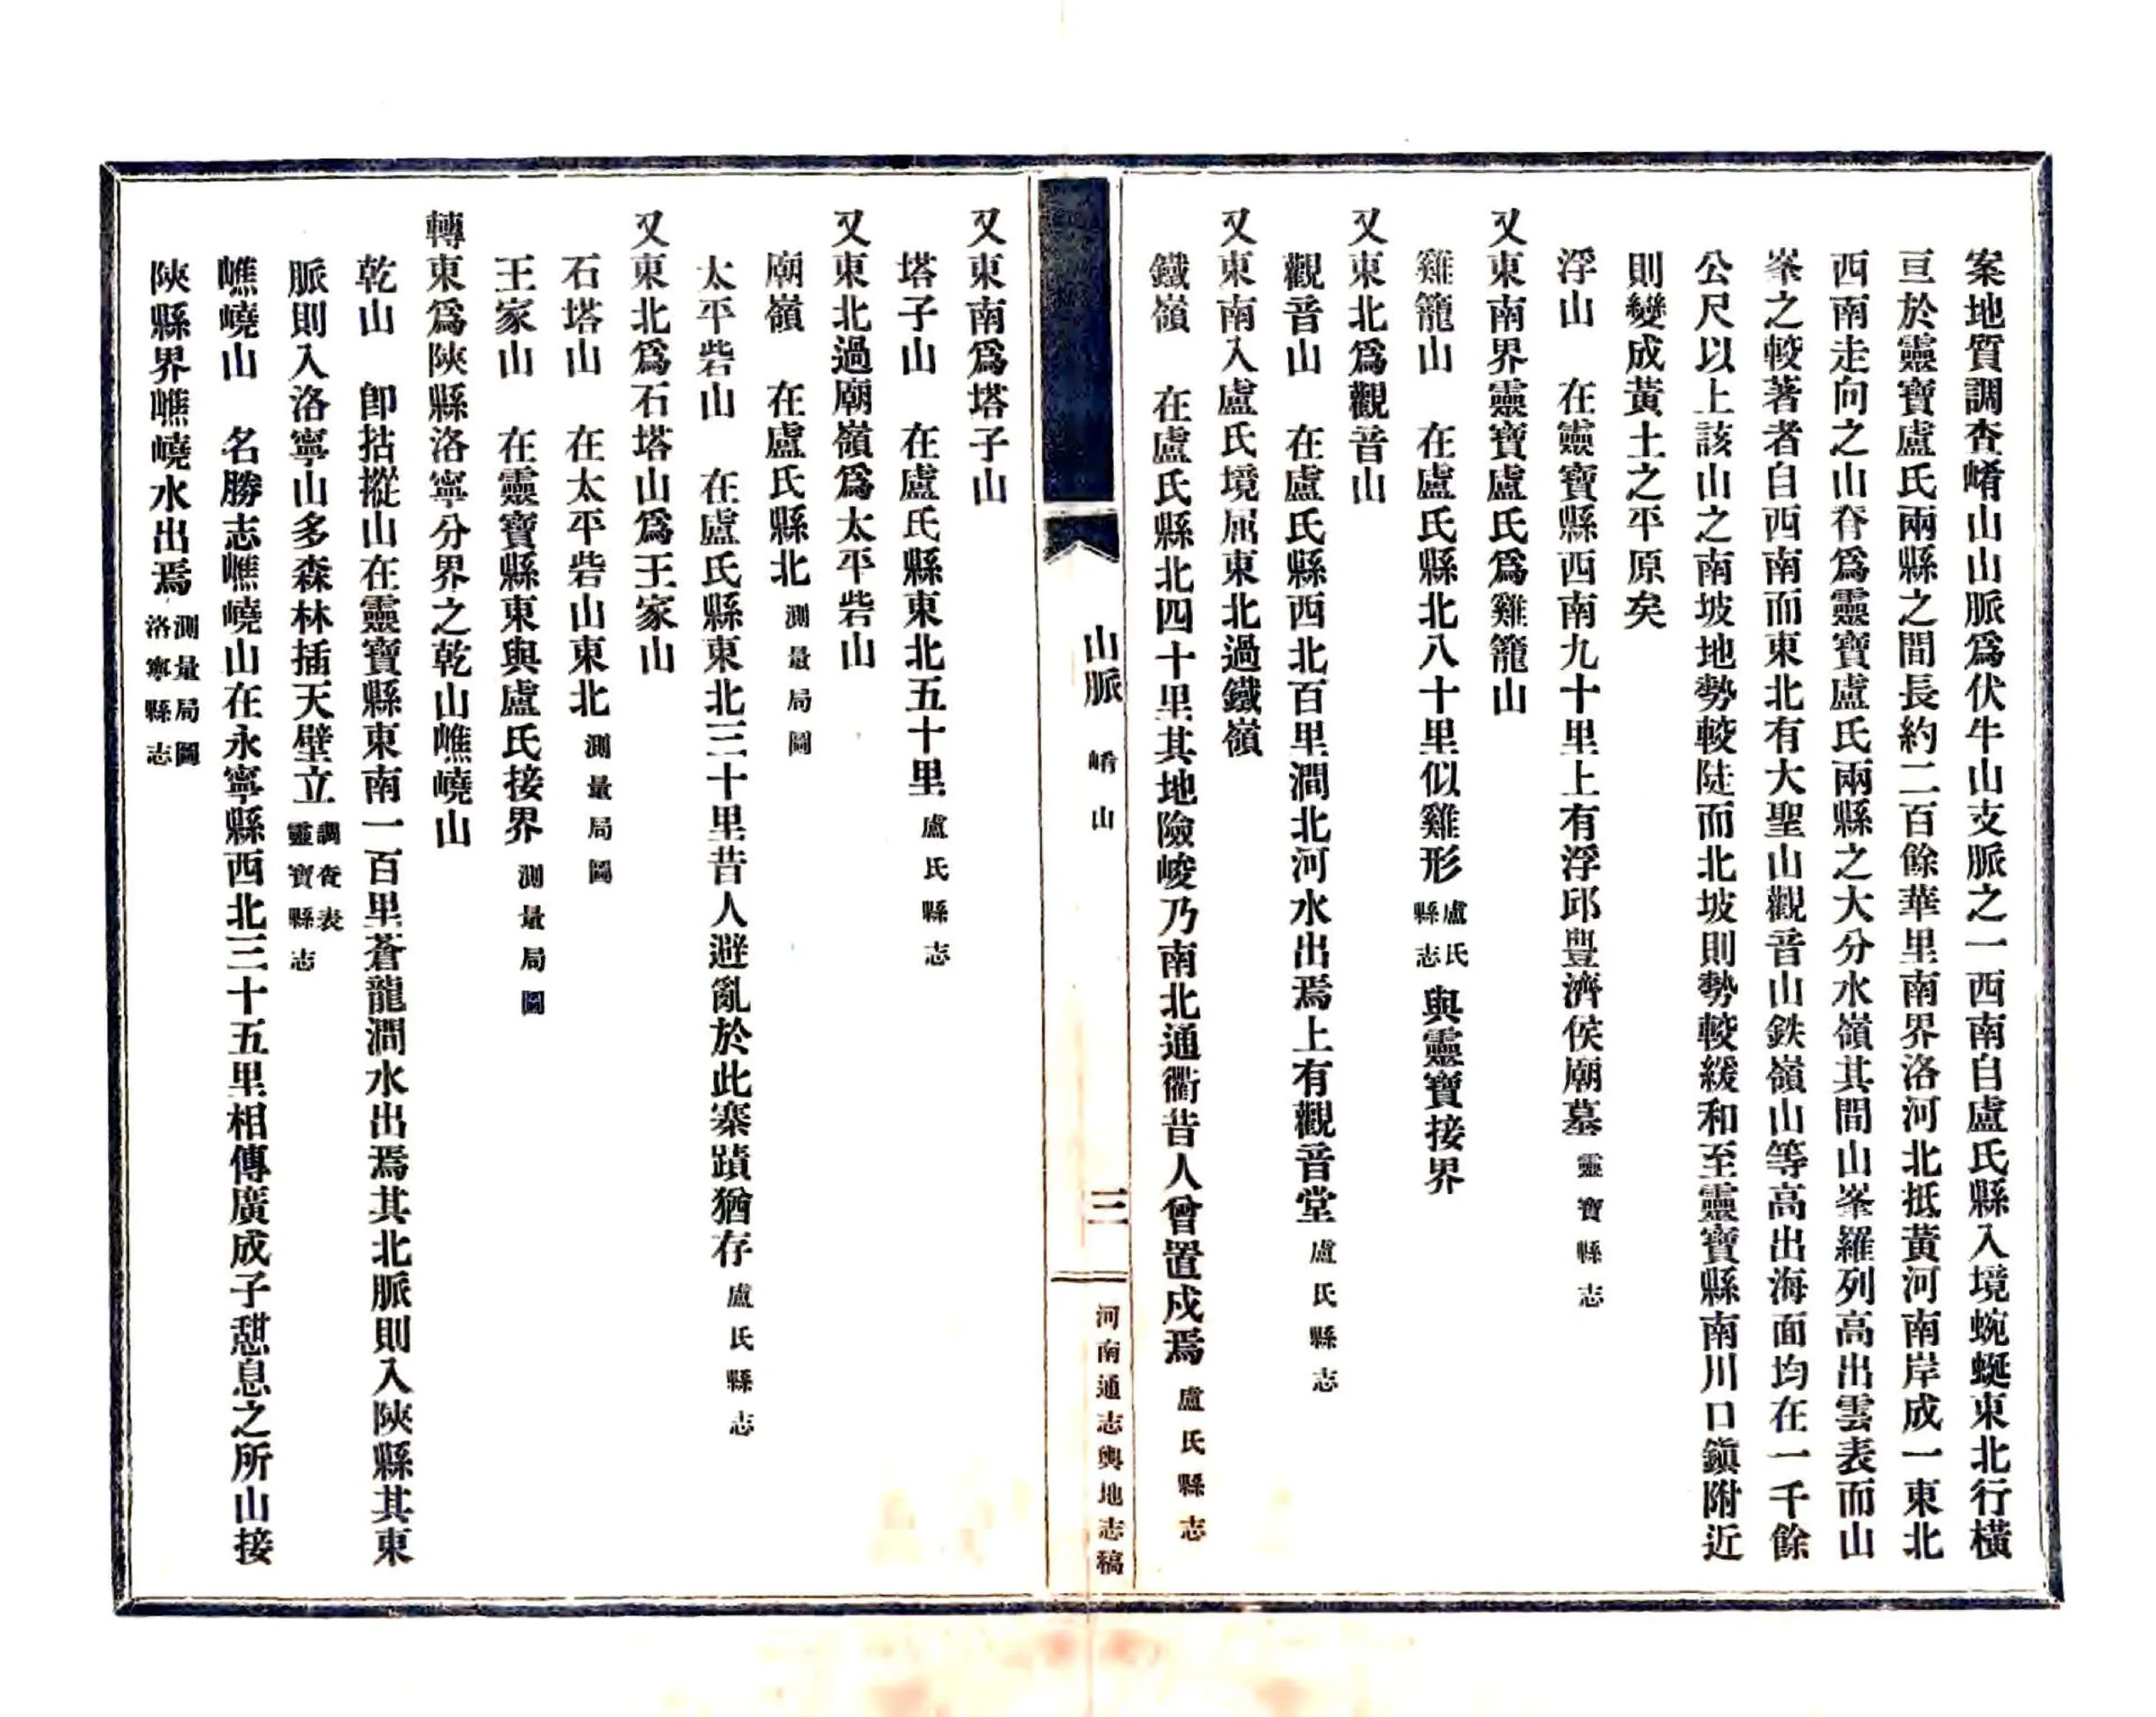 案地質調查崤山山脈爲伏牛山支脈之一西南自盧氏縣入境蜿蜒東北行橫
亘於靈寶盧氏兩縣之間長約二百餘華里南界洛河北抵黃河南岸成一東北
西南走向之山脊爲靈寶盧氏兩縣之大分水嶺其間山峯羅列高出雲表而山
峯之較著者自西南而東北有大聖山觀音山鉄嶺山等高出海面均在一千餘
公尺以上該山之南坡地勢較陡而北坡則勢較緩和至靈寶縣南川口鎭附近
則變成黃土之平原矣
浮山　在靈寶縣西南九十里上有浮邱豐濟侯廟墓 靈寶縣志
又東南界靈寶盧氏爲雞籠山
雞籠山　在盧氏縣北八十里似雞形 盧氏縣志 與靈寶接界
又東北爲觀音山
觀音山　在盧氏縣西北百里澗北河水出焉上有觀音堂 盧氏縣志
又東南入盧氏境屈東北過鐵嶺
鐵嶺　在盧氏縣北四十里其地險峻乃南北通衢昔人曾置戍焉 盧氏縣志
山脈 崤山
三
河南通志輿地志稿
又東南爲塔子山
塔子山　在盧氏縣東北五十里 盧氏縣志
又東北過廟嶺爲太平砦山
廟嶺　在盧氏縣北 測量局圖
太平砦山　在盧氏縣東北三十里昔人避亂於此寨蹟猶存 盧氏縣志
又東北爲石塔山爲王家山
石塔山　在太平砦山東北 測量局圖
王家山　在靈寶縣東與盧氏接界 測量局圖
轉東爲陝縣洛寧分界之乾山嶕嶢山
乾山　卽拈摐山在靈寶縣東南一百里蒼龍澗水出焉其北脈則入陝縣其東
脈則入洛寧山多森林插天壁立 調查表 靈寶縣志
嶕嶢山　名勝志嶕嶢山在永寧縣西北三十五里相傳廣成子憇息之所山接
陝縣界嶕嶢水出焉 測量局圖 洛寧縣志